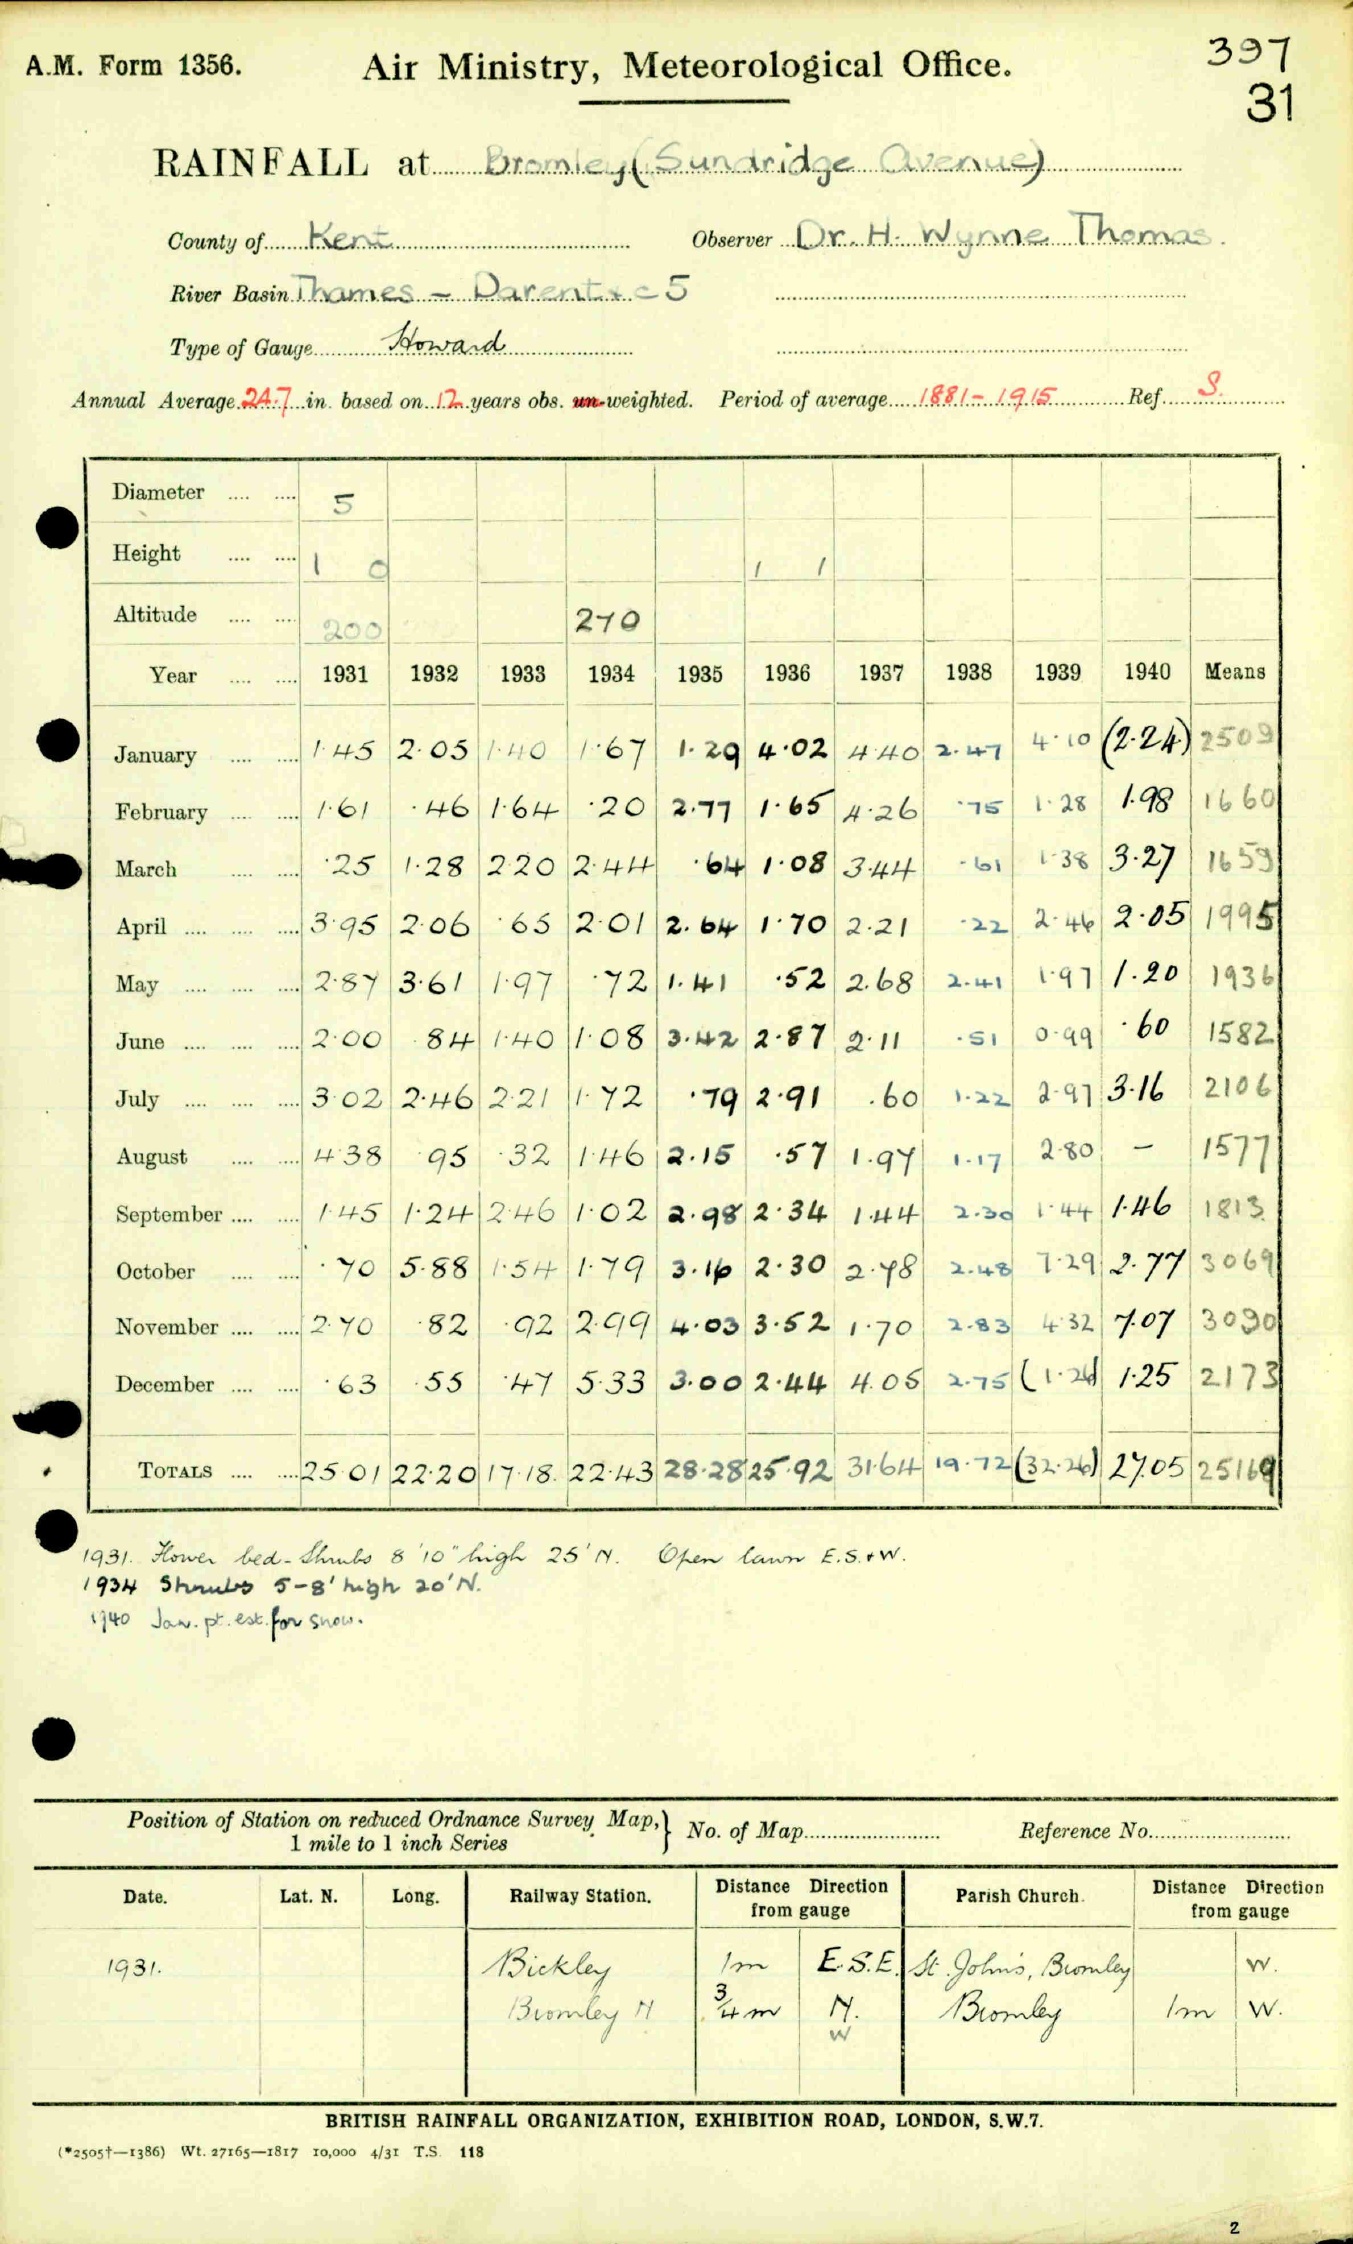 A.M. Form 1356. Air Ministry, Meteorological Office. 397
31
RAINFALL at Bromley (Sundridge Avenue)
County of Kent Observer Dr. H. Wynne Thomas.
River Basin Thames – Darent + c 5
Type of Gauge Howard
Annual Average 24.7 in. based on 12 years obs. un-weighted. Period of average 1881–1915 Ref. S.
Diameter 5
Height 1 0 1 1
Altitude 200 270
Year 1931 1932 1933 1934 1935 1936 1937 1938 1939 1940 Means
January 1.45 2.05 1.40 1.67 1.29 4.02 4.40 2.47 4.10 (2.24) 2509
February 1.61 .46 1.64 .20 2.77 1.65 4.26 .75 1.28 1.98 1660
March .25 1.28 2.20 2.44 .64 1.08 3.44 .61 1.38 3.27 1659
April 3.95 2.06 .65 2.01 2.64 1.70 2.21 .22 2.46 2.05 1995
May 2.87 3.61 1.97 .72 1.41 .52 2.68 2.41 1.97 1.20 1936
June 2.00 .84 1.40 1.08 3.42 2.87 2.11 .51 0.99 .60 1582
July 3.02 2.46 2.21 1.72 .79 2.91 .60 1.22 2.97 3.16 2106
August 4.38 .95 .32 1.46 2.15 .57 1.97 1.17 2.80 – 1577
September 1.45 1.24 2.46 1.02 2.98 2.34 1.44 2.30 1.44 1.46 1813
October .70 5.88 1.54 1.79 3.16 2.30 2.78 2.48 7.29 2.77 3069
November 2.70 .82 .92 2.99 4.03 3.52 1.70 2.83 4.32 7.07 3090
December .63 .55 .47 5.33 3.00 2.44 4.05 2.75 (1.26) 1.25 2173
TOTALS 25.01 22.20 17.18 22.43 28.28 25.92 31.64 19.72 (32.26) 27.05 25169
1931. Flower bed - Shrubs 8'10" high 25' N. Open lawn E.S.+W.
1934 Shrubs 5-8' high 20' N.
1940 Jan. pt. est. for snow.
Position of Station on reduced Ordnance Survey Map, } No. of Map Reference No.
1 mile to 1 inch Series
Date. Lat. N. Long. Railway Station. Distance Direction from gauge Parish Church. Distance Direction from gauge
1931. Bickley 1m E.S.E. St. John's, Bromley W.
Bromley N 3/4 m N. Bromley 1m W.
W
BRITISH RAINFALL ORGANIZATION, EXHIBITION ROAD, LONDON, S.W.7.
(*2505†—1386) Wt. 27165—1817 10,000 4/31 T.S. 118
2